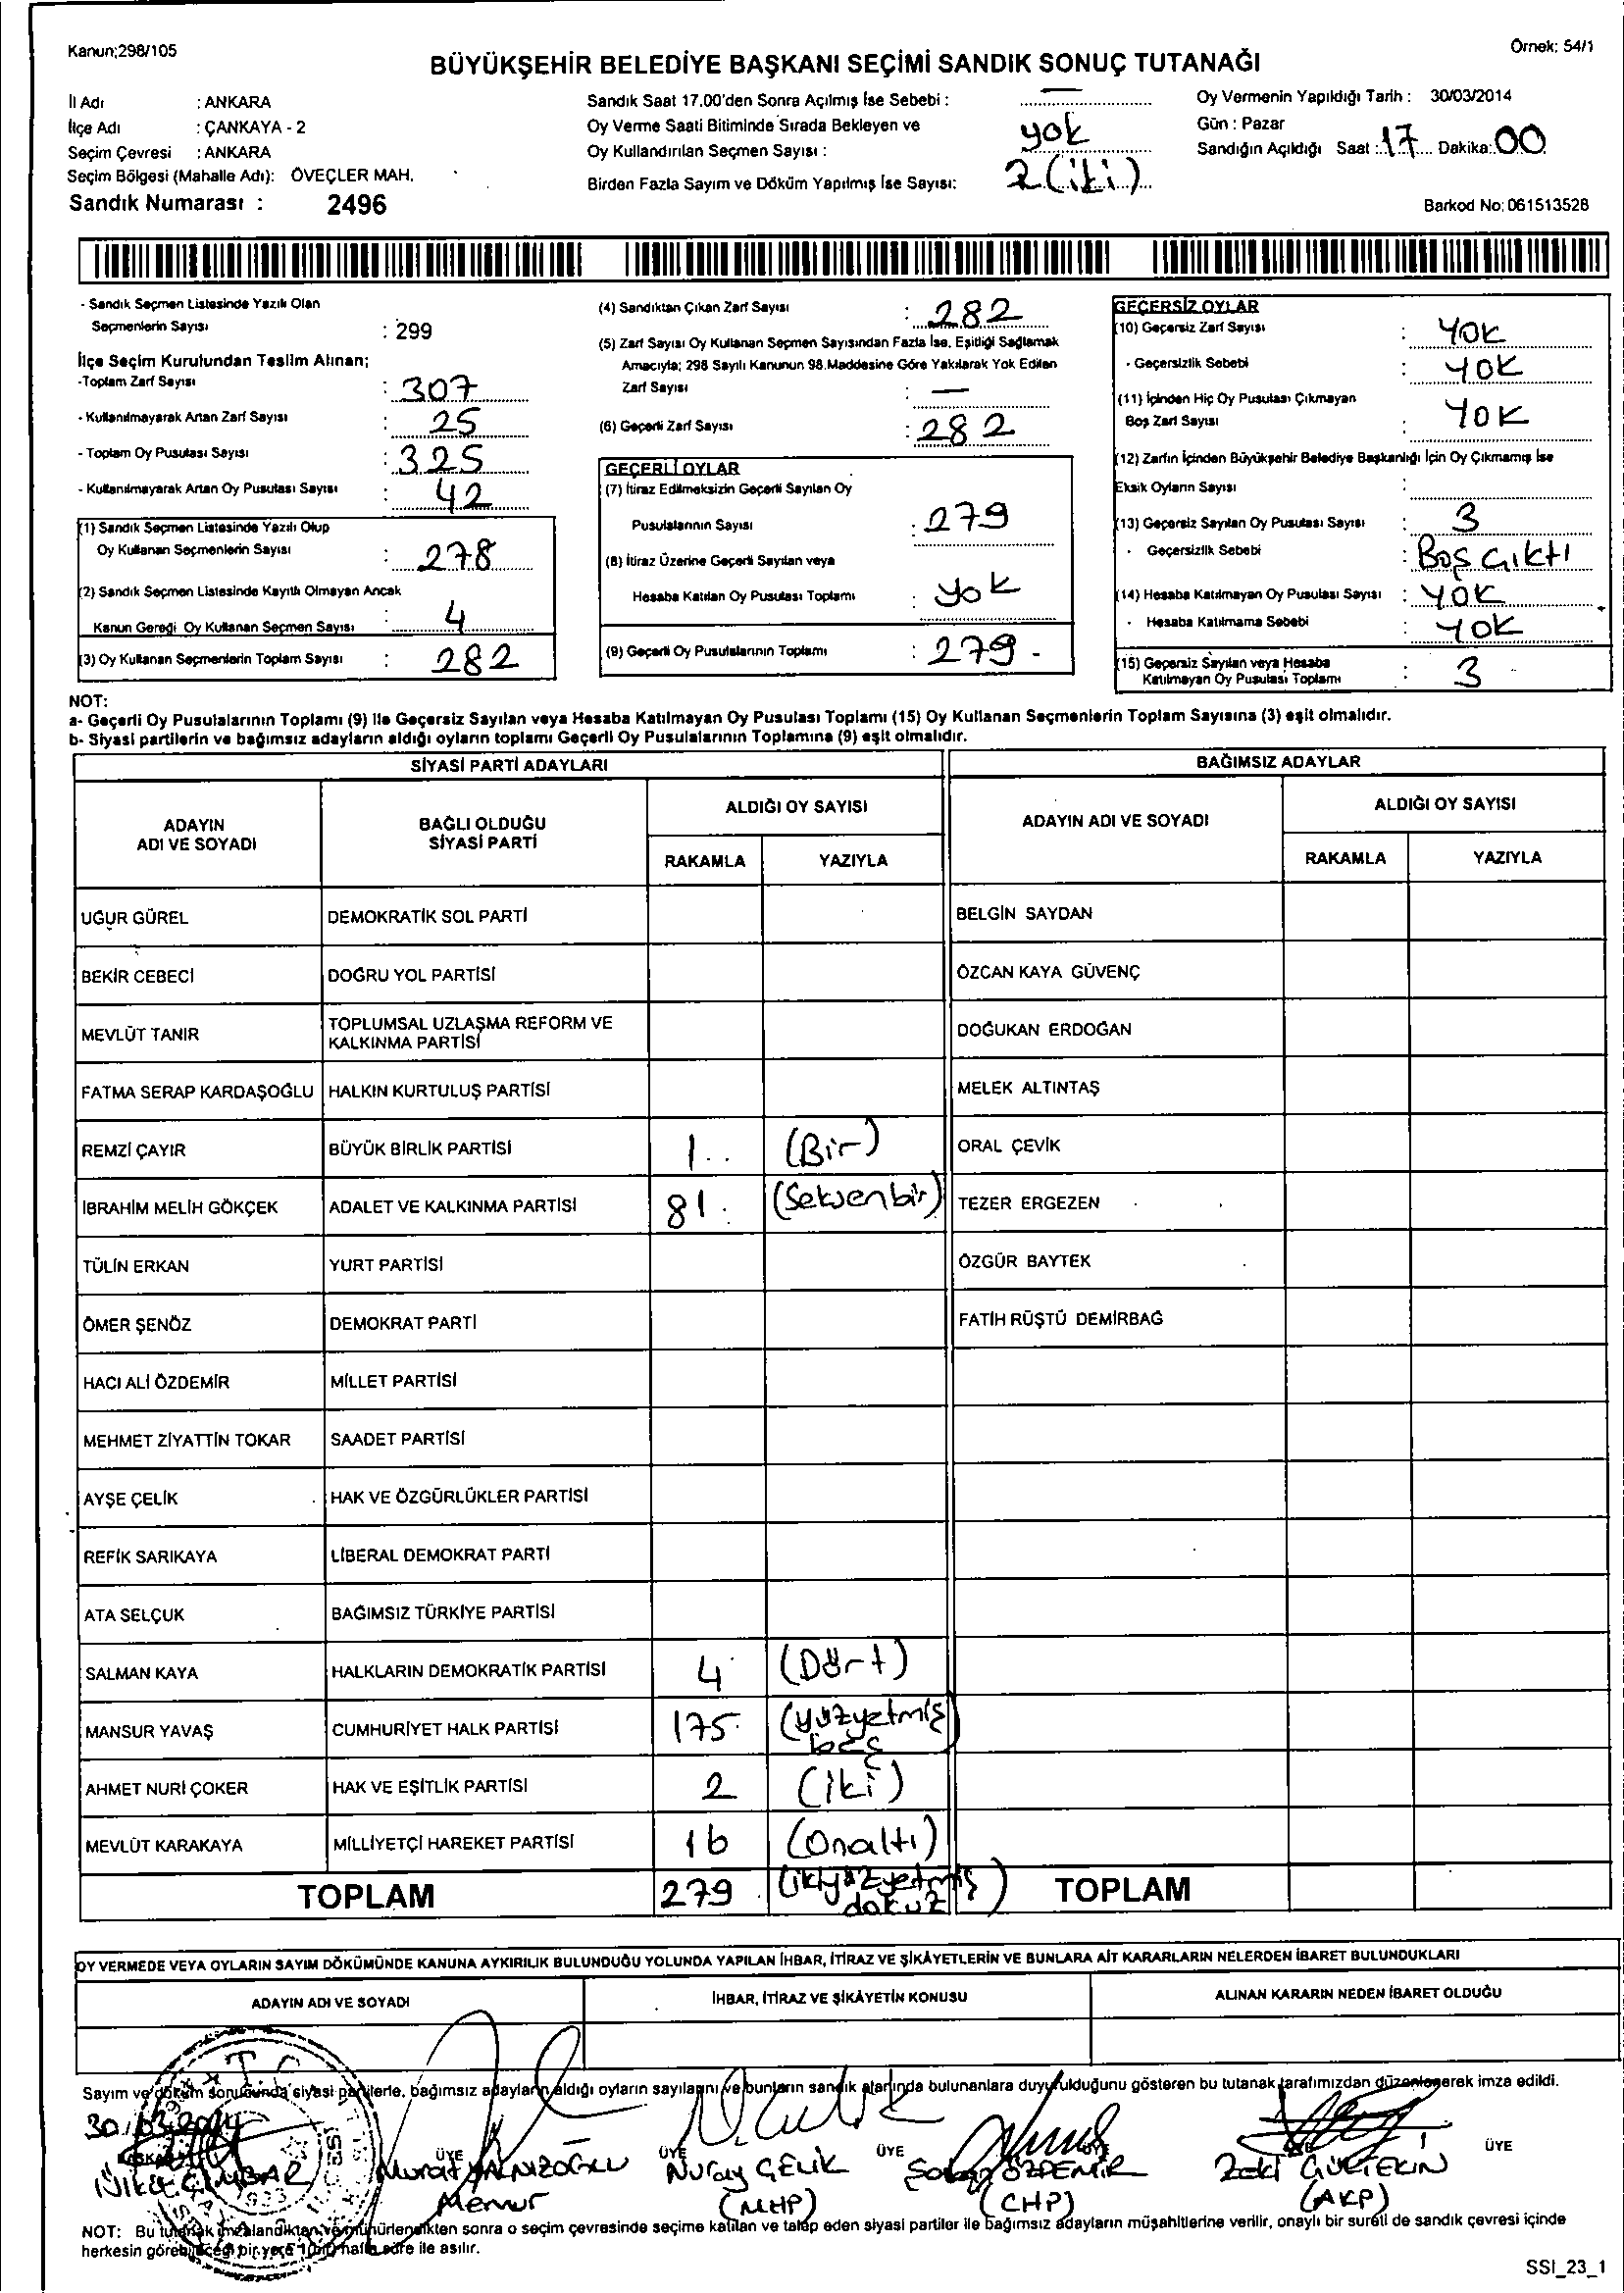 Kanun;298/105
Örnek: 54/1
BÜYÜKŞEHİR BELEDİYE BAŞKANI SEÇİMİ SANDIK SONUÇ TUTANAĞI
İl Adı : ANKARA
İlçe Adı : ÇANKAYA - 2
Seçim Çevresi : ANKARA
Seçim Bölgesi (Mahalle Adı): ÖVEÇLER MAH.
Sandık Numarası : 2496
Sandık Saat 17.00'den Sonra Açılmış İse Sebebi : —
Oy Verme Saati Bitiminde Sırada Bekleyen ve
Oy Kullandırılan Seçmen Sayısı : yok
Birden Fazla Sayım ve Döküm Yapılmış İse Sayısı: 2 (iki)
Oy Vermenin Yapıldığı Tarih : 30/03/2014
Gün : Pazar
Sandığın Açıldığı Saat : 17 Dakika: 00
Barkod No: 061513528
- Sandık Seçmen Listesinde Yazılı Olan
Seçmenlerin Sayısı : 299
İlçe Seçim Kurulundan Teslim Alınan;
-Toplam Zarf Sayısı : 307
- Kullanılmayarak Artan Zarf Sayısı : 25
- Toplam Oy Pusulası Sayısı : 325
- Kullanılmayarak Artan Oy Pusulası Sayısı : 42
(1) Sandık Seçmen Listesinde Yazılı Olup
Oy Kullanan Seçmenlerin Sayısı : 278
(2) Sandık Seçmen Listesinde Kayıtlı Olmayan Ancak
Kanun Gereği Oy Kullanan Seçmen Sayısı : 4
(3) Oy Kullanan Seçmenlerin Toplam Sayısı : 282
(4) Sandıktan Çıkan Zarf Sayısı : 282
(5) Zarf Sayısı Oy Kullanan Seçmen Sayısından Fazla İse, Eşitliği Sağlamak
Amacıyla; 298 Sayılı Kanunun 98.Maddesine Göre Yakılarak Yok Edilen
Zarf Sayısı : —
(6) Geçerli Zarf Sayısı : 282
GEÇERLİ OYLAR
(7) İtiraz Edilmeksizin Geçerli Sayılan Oy
Pusulalarının Sayısı : 279
(8) İtiraz Üzerine Geçerli Sayılan veya
Hesaba Katılan Oy Pusulası Toplamı : yok
(9) Geçerli Oy Pusulalarının Toplamı : 279 -
GEÇERSİZ OYLAR
(10) Geçersiz Zarf Sayısı : YOK
- Geçersizlik Sebebi : YOK
(11) İçinden Hiç Oy Pusulası Çıkmayan
Boş Zarf Sayısı : YOK
(12) Zarfın İçinden Büyükşehir Belediye Başkanlığı İçin Oy Çıkmamış İse
Eksik Oyların Sayısı :
(13) Geçersiz Sayılan Oy Pusulası Sayısı : 3
- Geçersizlik Sebebi : Boş Çıktı
(14) Hesaba Katılmayan Oy Pusulası Sayısı : YOK
- Hesaba Katılmama Sebebi : YOK
(15) Geçersiz Sayılan veya Hesaba
Katılmayan Oy Pusulası Toplamı : 3
NOT:
a- Geçerli Oy Pusulalarının Toplamı (9) ile Geçersiz Sayılan veya Hesaba Katılmayan Oy Pusulası Toplamı (15) Oy Kullanan Seçmenlerin Toplam Sayısına (3) eşit olmalıdır.
b- Siyasi partilerin ve bağımsız adayların aldığı oyların toplamı Geçerli Oy Pusulalarının Toplamına (9) eşit olmalıdır.
SİYASİ PARTİ ADAYLARI
BAĞIMSIZ ADAYLAR
ADAYIN
ADI VE SOYADI
BAĞLI OLDUĞU
SİYASİ PARTİ
ALDIĞI OY SAYISI
RAKAMLA YAZIYLA
ADAYIN ADI VE SOYADI
ALDIĞI OY SAYISI
RAKAMLA YAZIYLA
UĞUR GÜREL DEMOKRATİK SOL PARTİ BELGİN SAYDAN
BEKİR CEBECİ DOĞRU YOL PARTİSİ ÖZCAN KAYA GÜVENÇ
MEVLÜT TANIR TOPLUMSAL UZLAŞMA REFORM VE
KALKINMA PARTİSİ DOĞUKAN ERDOĞAN
FATMA SERAP KARDAŞOĞLU HALKIN KURTULUŞ PARTİSİ MELEK ALTINTAŞ
REMZİ ÇAYIR BÜYÜK BİRLİK PARTİSİ 1 (Bir) ORAL ÇEVİK
İBRAHİM MELİH GÖKÇEK ADALET VE KALKINMA PARTİSİ 81 (Seksenbir) TEZER ERGEZEN
TÜLİN ERKAN YURT PARTİSİ ÖZGÜR BAYTEK
ÖMER ŞENÖZ DEMOKRAT PARTİ FATİH RÜŞTÜ DEMİRBAĞ
HACI ALİ ÖZDEMİR MİLLET PARTİSİ
MEHMET ZİYATTİN TOKAR SAADET PARTİSİ
AYŞE ÇELİK HAK VE ÖZGÜRLÜKLER PARTİSİ
REFİK SARIKAYA LİBERAL DEMOKRAT PARTİ
ATA SELÇUK BAĞIMSIZ TÜRKİYE PARTİSİ
SALMAN KAYA HALKLARIN DEMOKRATİK PARTİSİ 4 (Dört)
MANSUR YAVAŞ CUMHURİYET HALK PARTİSİ 175 (yüzyetmiş
beş)
AHMET NURİ ÇOKER HAK VE EŞİTLİK PARTİSİ 2 (iki)
MEVLÜT KARAKAYA MİLLİYETÇİ HAREKET PARTİSİ 16 (Onaltı)
TOPLAM 279 (ikiyüzyetmiş
dokuz) TOPLAM
OY VERMEDE VEYA OYLARIN SAYIM DÖKÜMÜNDE KANUNA AYKIRILIK BULUNDUĞU YOLUNDA YAPILAN İHBAR, İTİRAZ VE ŞİKÂYETLERİN VE BUNLARA AİT KARARLARIN NELERDEN İBARET BULUNDUKLARI
ADAYIN ADI VE SOYADI İHBAR, İTİRAZ VE ŞİKÂYETİN KONUSU ALINAN KARARIN NEDEN İBARET OLDUĞU
Sayım ve döküm sonucunda siyasi partilerle, bağımsız adayların aldığı oyların sayılarını ve bunların sandık alanında bulunanlara duyurulduğunu gösteren bu tutanak tarafımızdan düzenlenerek imza edildi.
30/03/2014
ÜYE ÜYE ÜYE ÜYE
Murat YALNIZOĞLU Nuray ÇELİK ÖZDEMİR Zeki GÜLTEKİN
Memur (MHP) (CHP) (AKP)
NOT: Bu tutanak imzalandıktan ve mühürlendikten sonra o seçim çevresinde seçime katılan ve talep eden siyasi partiler ile bağımsız adayların müşahitlerine verilir, onaylı bir sureti de sandık çevresi içinde
herkesin görebileceği bir yere 1 (bir) hafta süre ile asılır.
SSI_23_1